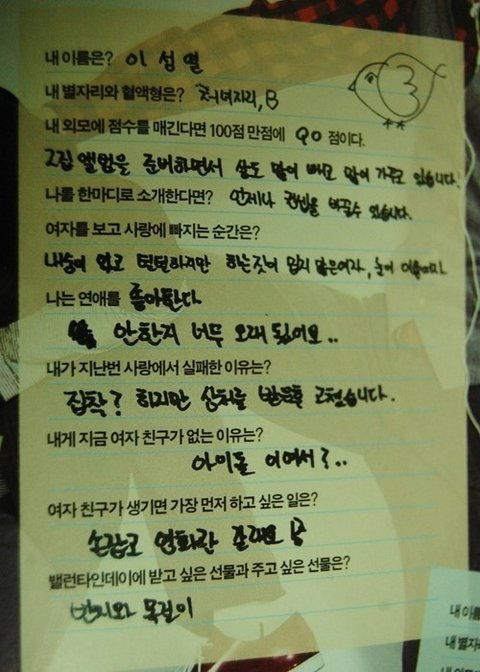 내 이름은? 이성열
내 별자리와 혈액형은? 처녀자리, B
내 외모에 점수를 매긴다면 100점 만점에 90 점이다.
2집 앨범을 준비하면서 살도 많이 빼고 많이 가꾸고 있습니다.
나를 한마디로 소개한다면? 언제나 변신을 바꿀수 있습니다.
여자를 보고 사랑에 빠지는 순간은?
내숭이 없고 털털하지만 하는짓이 밉지 않은여자, 눈이
나는 연애를 좋아한다
안한지 너무 오래 됐어요..
내가 지난번 사랑에서 실패한 이유는?
집착? 하지만 상처를 받은후 고쳤습니다.
내게 지금 여자 친구가 없는 이유는?
아이돌 이여서?..
여자 친구가 생기면 가장 먼저 하고 싶은 일은?
손잡고 영화관 갈래요
밸런타인데이에 받고 싶은 선물과 주고 싶은 선물은?
반지와 목걸이
내 이름
내 별자